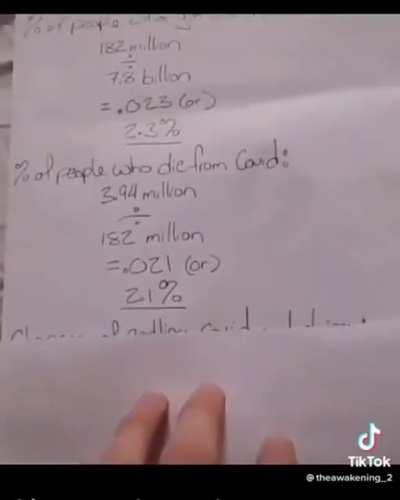 % of people who
182 million
÷
7.8 billion
= .023 (or)
2.3%
% of people who die from Covid:
3.94 million
÷
182 million
= .021 (or)
2.1%
TikTok
@theawakening_2